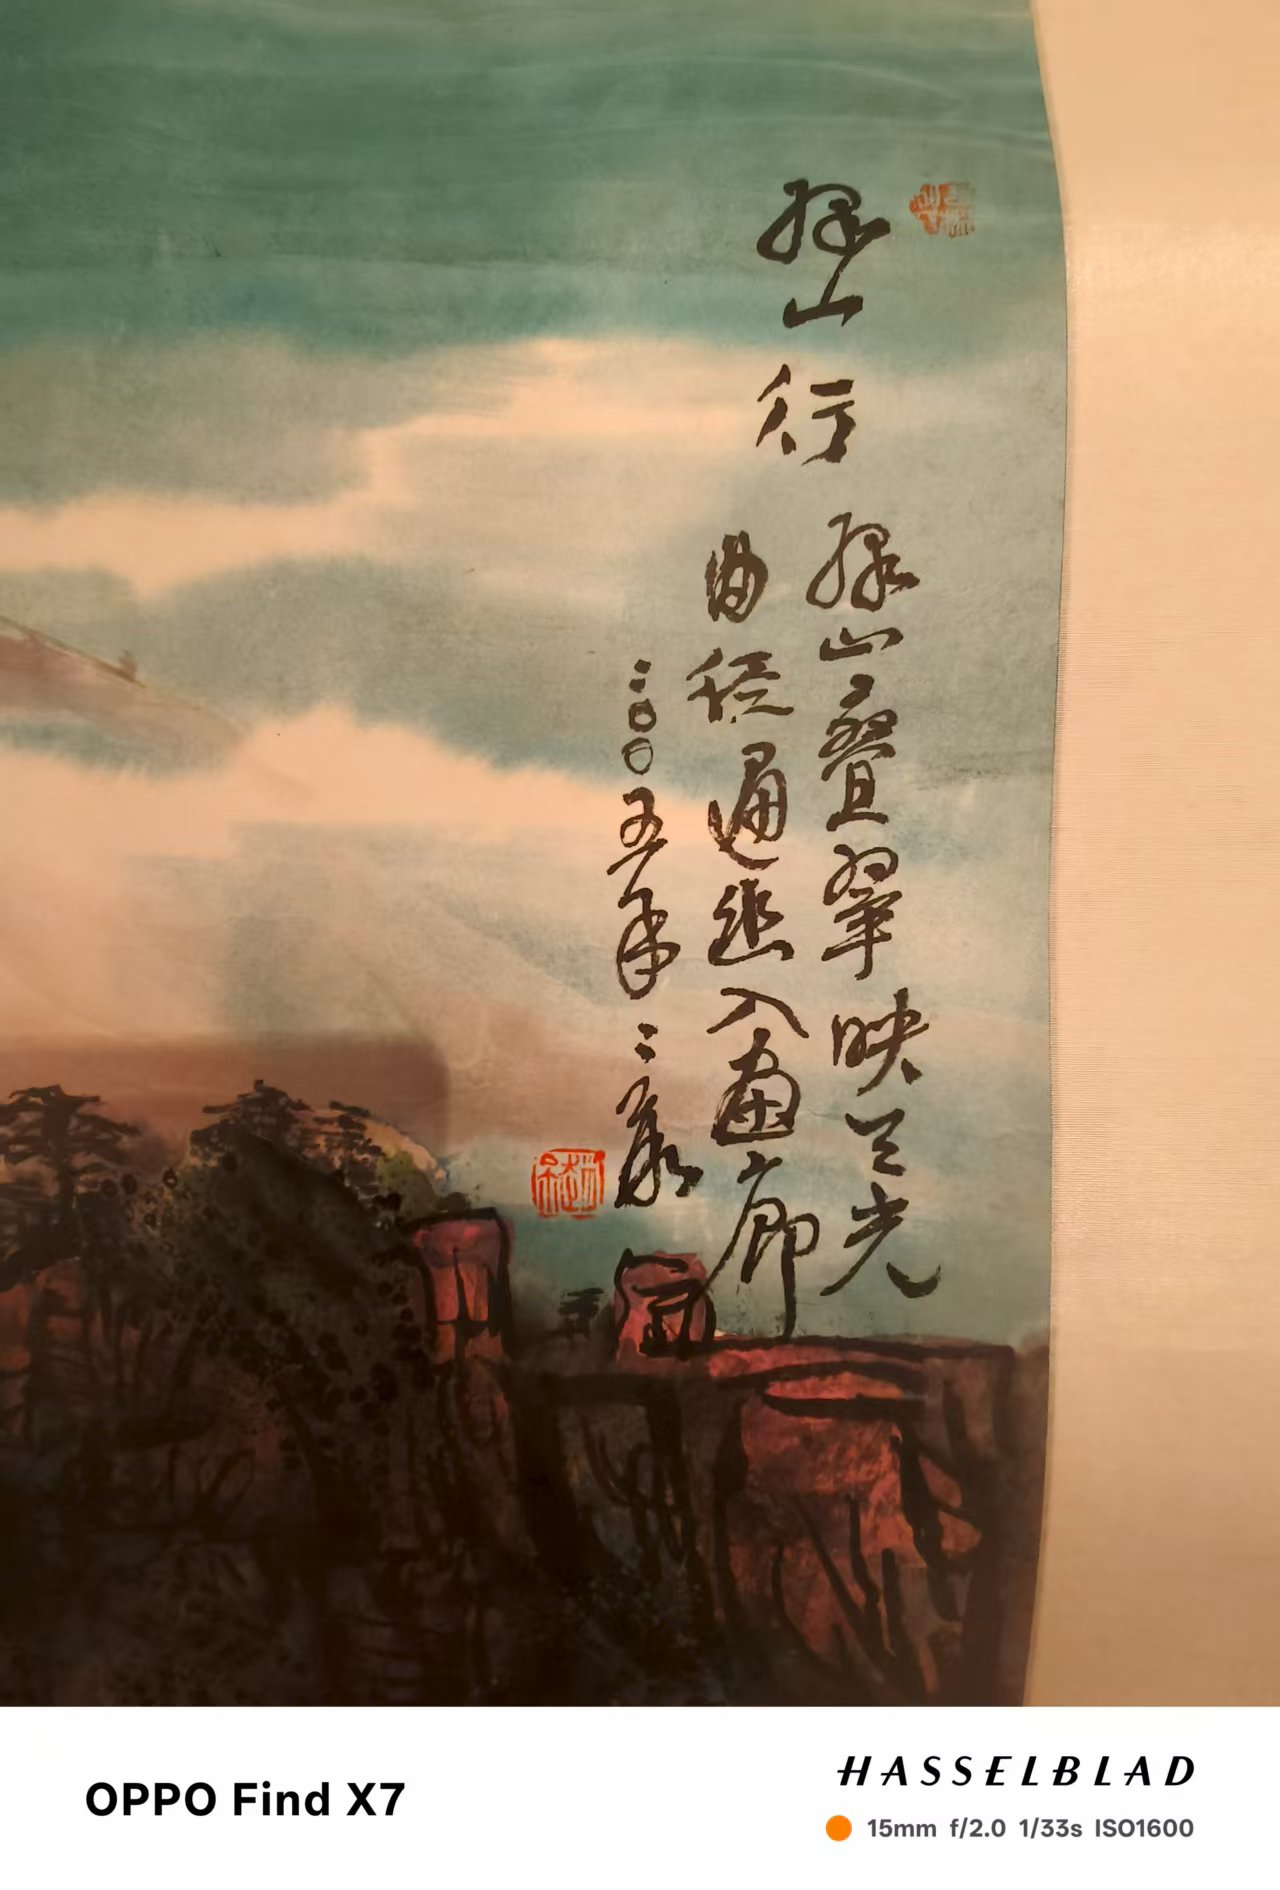 绿山行
绿山叠翠映天光
曲径通幽入畫廊
二〇〇五年
OPPO Find X7
HASSELBLAD
15mm f/2.0 1/33s ISO1600